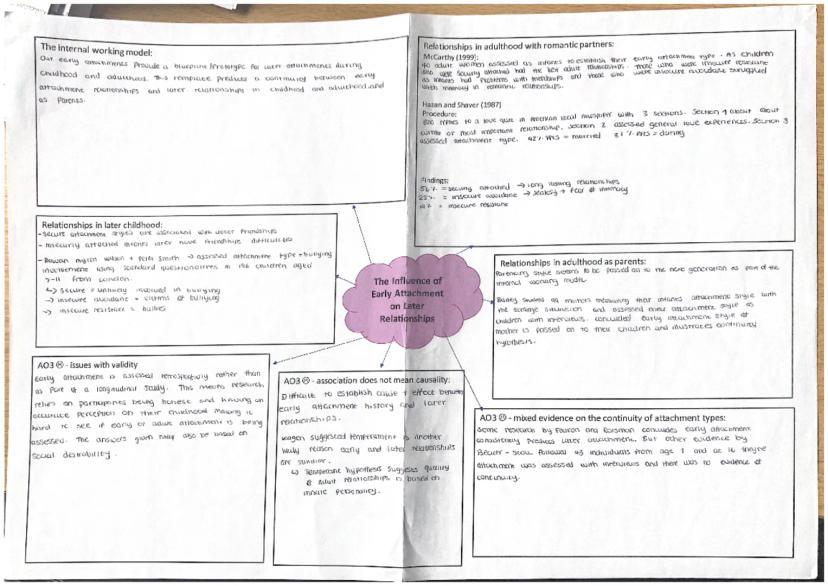 The internal working model:
Our early attachments provide a blueprint/prototype for later attachments during
childhood and adulthood. This template predicts a continuity between early
attachment relationships and later relationships in childhood and adulthood and
as parents.
Relationships in adulthood with romantic partners:
McCarthy (1999):
40 adult women assessed as infants to establish their early attachment type. As children
who were securely attached had the best adult relationships. Those who were insecure resistant
as infants had problems with friendships and those who were insecure avoidant struggled
with intimacy in romantic relationships.
Hazan and Shaver (1987)
Procedure:
620 replies to a love quiz in American local newspaper with 3 sections. Section 1 about
current or most important relationship. Section 2 assessed general love experiences. Section 3
assessed attachment type. 42% = married 31% = dating
Findings:
56% = securely attached → long lasting relationships
25% = insecure avoidance → jealousy + fear of intimacy
19% = insecure resistant
Relationships in later childhood:
- Secure attachment styles are associated with better friendships
- Insecurely attached infants later have friendships difficulties
- Wilson + Smith → assessed attachment type + bullying
involvement using standard questionnaires in 196 children aged
7-11 from London.
↳ Secure = unlikely involved in bullying
→ insecure avoidant = victims of bullying
→ insecure resistant = bullies
The Influence of
Early Attachment
on Later
Relationships
Relationships in adulthood as parents:
Parenting style seems to be passed on to the next generation as part of the
internal working model.
Bailey studied 99 mothers measuring their infants attachment style with
the strange situation and assessed their attachment style as
children with interviews. concluded early attachment style of
mother is passed on to their children and illustrates continuity
hypothesis.
AO3 ☹ - issues with validity
Early attachment is assessed retrospectively rather than
as part of a longitudinal study. This means research
relies on participants being honest and having an
accurate perception on their childhood making it
hard to see if early or adult attachment is being
assessed. The answers given may also be based on
social desirability.
AO3 ☹ - association does not mean causality:
Difficult to establish cause + effect between
early attachment history and later
relationships.
Kagan suggested temperament is another
likely reason early and later relationships
are similar.
↳ Temperament hypothesis suggests quality
of adult relationships is based on
innate personality.
AO3 ☹ - mixed evidence on the continuity of attachment types:
Some research by and concludes early attachment
consistently predicts later attachment. But other evidence by
followed 43 individuals from age 1 and at 16 they're
attachment was assessed with interviews and there was no evidence of
continuity.